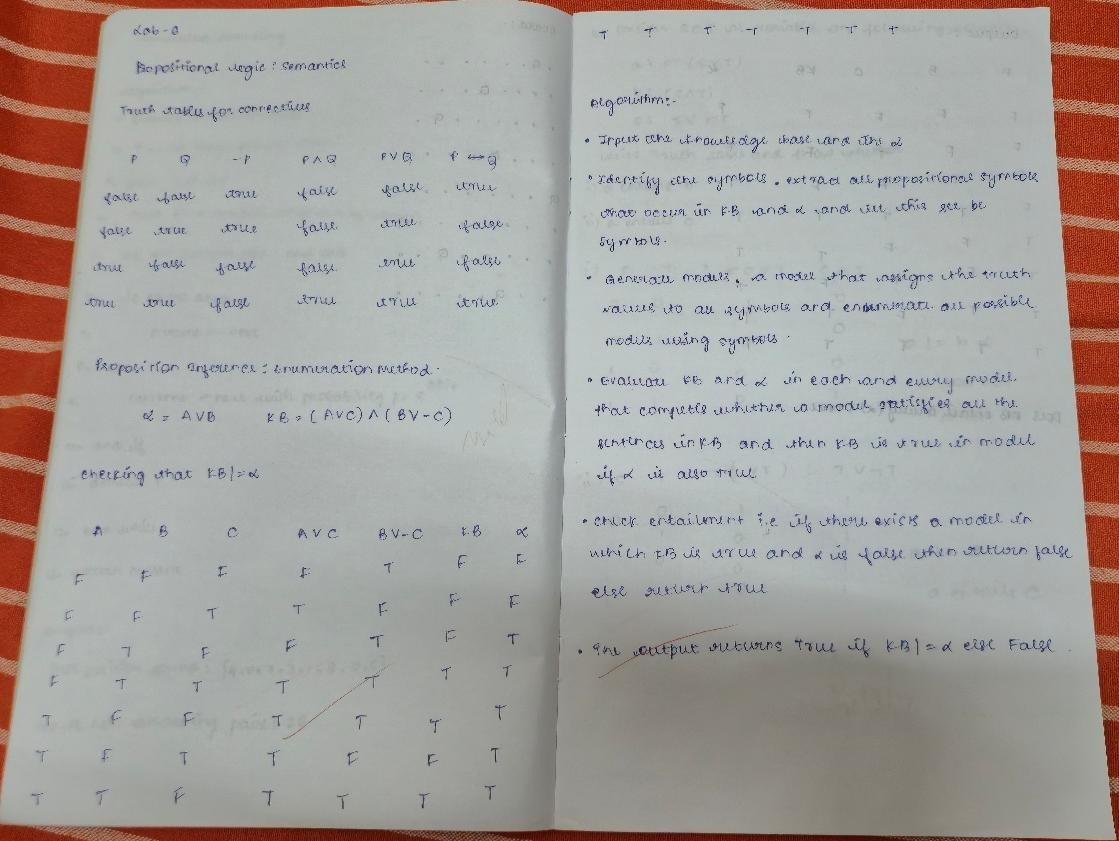 Lab-8
Propositional Logic : Semantics
Truth tables for connectives
P Q ¬P P∧Q P∨Q P⟷Q
false false true false false true
false true true false true false
true false false false true false
true true false true true true
Proposition Inference : Enumeration Method.
α = A∨B KB = (A∨C) ∧ (B∨¬C)
checking that KB|=α
A B C A∨C B∨¬C KB α
F F F F T F F
F F T T F F F
F T F F T F T
F T T T T T T
T F F T T T T
T F T T F F T
T T F T T T T
T T T T T T T
Algorithm:-
• Input the knowledge base and the α
• Identify the symbols. extract all propositional symbols
that occur in KB and α and let this set be
symbols.
• Generate models, a model that assigns the truth
values to all symbols and enumerate all possible
models using symbols.
• Evaluate KB and α in each and every model.
that completes whether a model satisfies all the
sentences in KB and then KB is true in model
if α is also true
• check entailment i.e if there exists a model in
which KB is true and α is false then return false
else return true
• The output returns True if KB|=α else False.